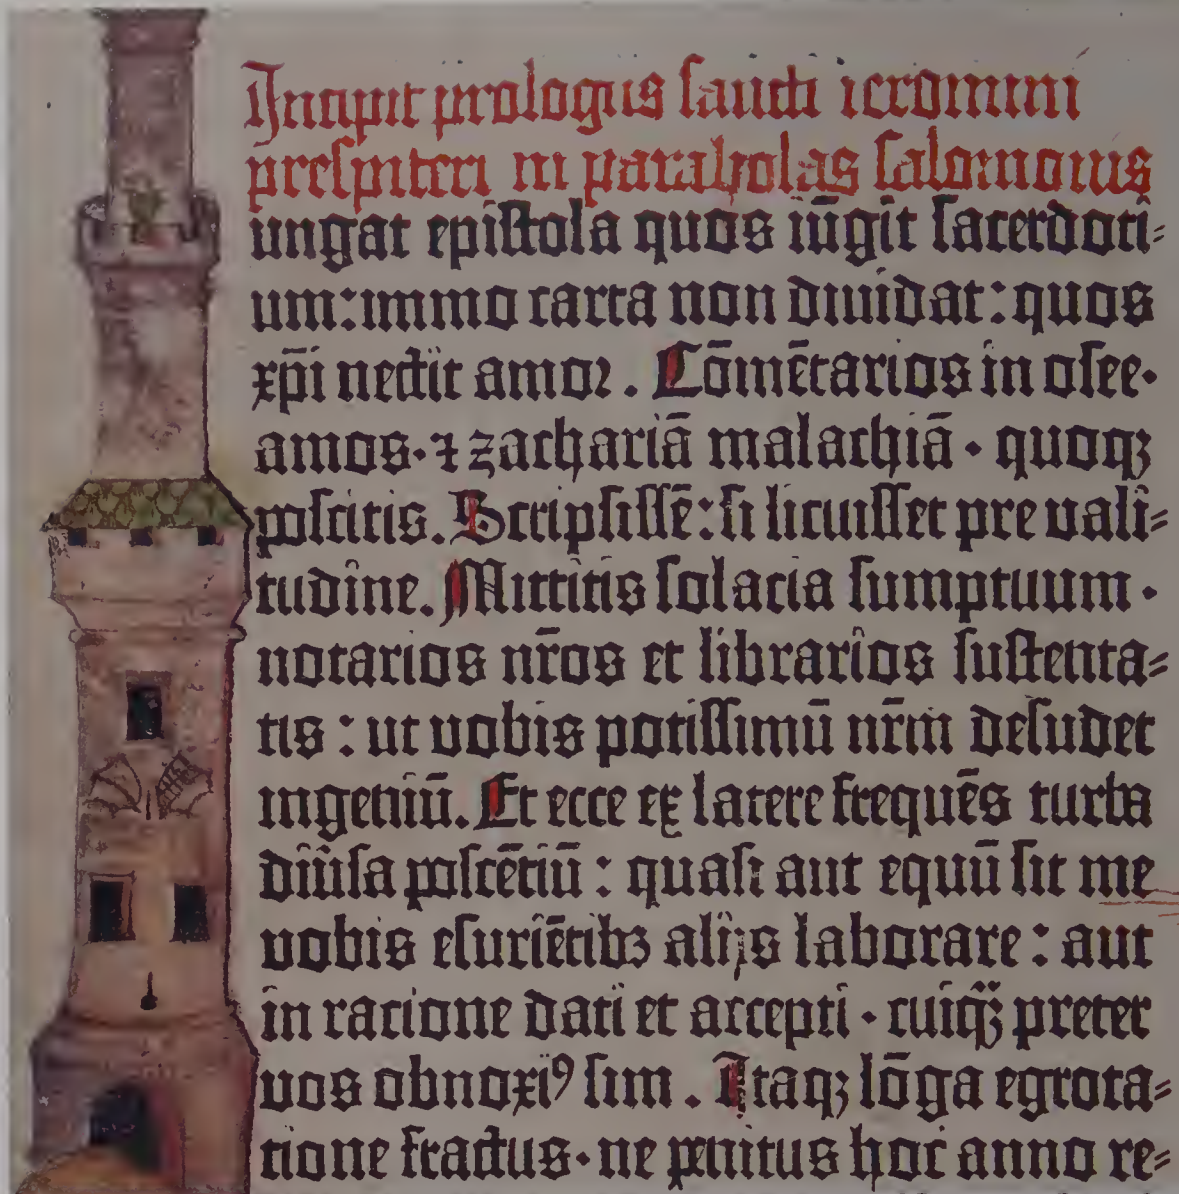 Incipit prologus sancti ieronimi
presbiteri in parabolas salomonis
ungat epistola quos iūgit sacerdoti⸗
um: immo carta non diuidat: quos
xp̄i nectit amor. Cōmētarios in osee·
amos· ⁊ zachariā malachiā· quoqꝫ
poscitis. Scripsissē: si licuisset pre uali⸗
tudine. Mittitis solacia sumptuum·
notarios nr̄os et librarios sustenta⸗
tis: ut vobis potissimū nr̄m desudet
ingeniū. Et ecce ex latere frequēs turba
diūsa poscētiū: quasi aut equū sit me
vobis esuriētibꝫ alijs laborare: aut
in racione dati et accepti· cuiqꝫ̈ preter
vos obnoxiꝰ sim. Itaqꝫ lōga egrota⸗
tione fractus· ne penitus hoc anno re⸗